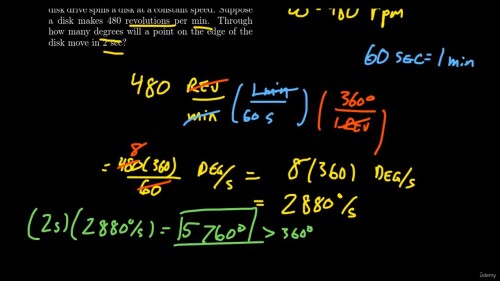 disk drive spins a disk at a constant speed. Suppose
a disk makes 480 revolutions per min. Through
how many degrees will a point on the edge of the
disk move in 2 sec?
ω = 480 rpm
60 SEC = 1 min
480 REV/min (1 min/60 s) (360°/1 REV)
= 8 480(360)/60 DEG/s = 8(360) DEG/s
= 2880°/s
(2s)(2880°/s) = 5760° > 360°
Udemy